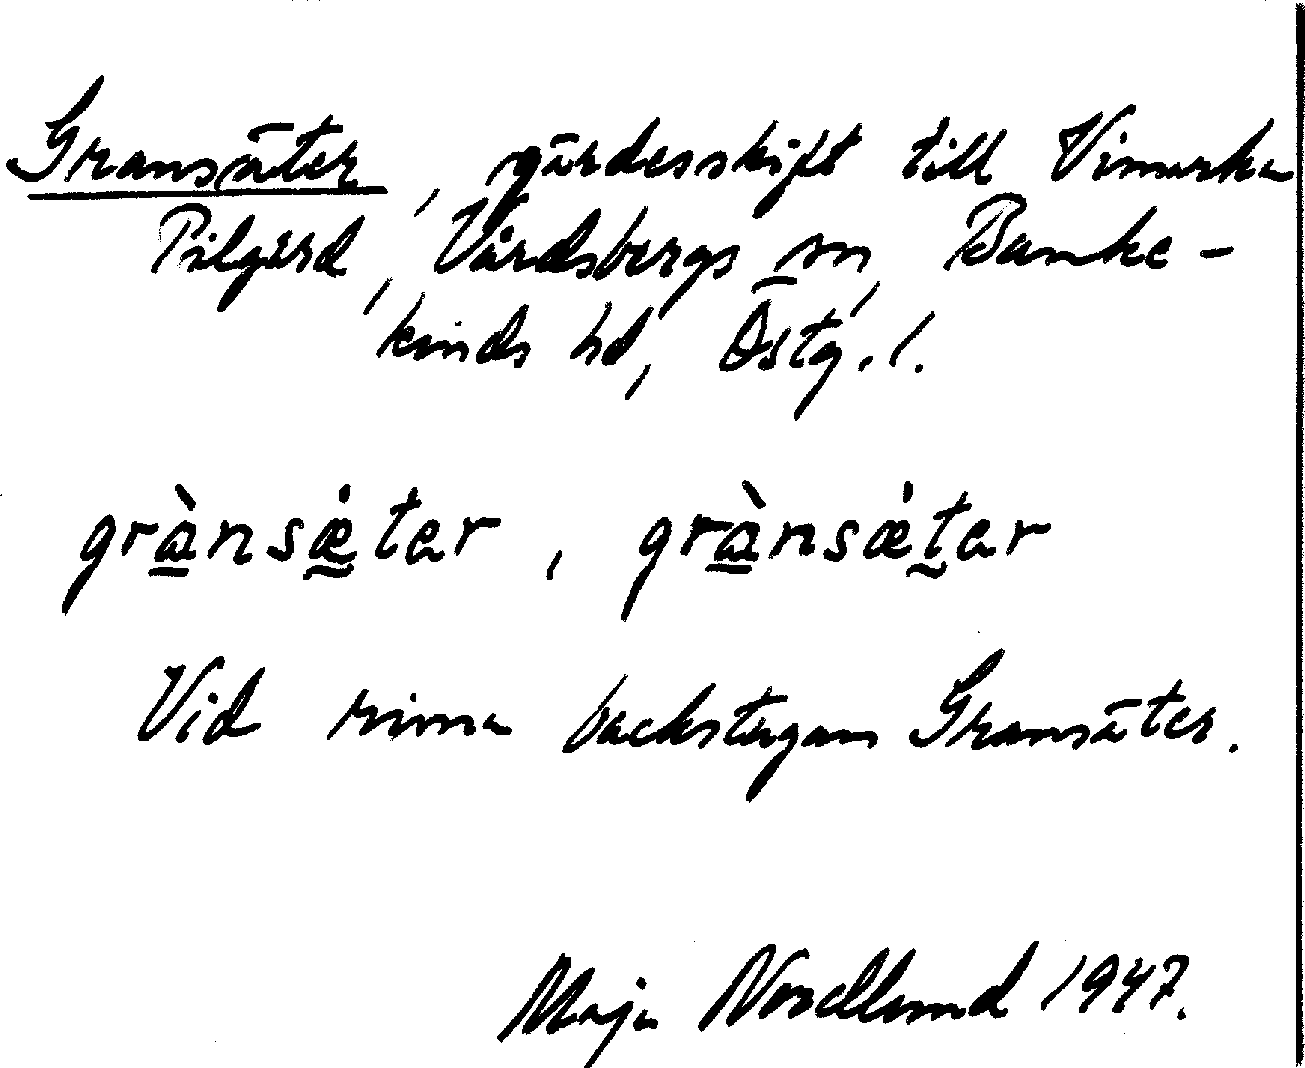 Gransäter, gärdesskift till Vimarka
Pilgård, Vårdsbergs sn, Banke-
kinds hd, Östg. l.
grànsǽter, grànsǽter
Vid rivna backstugan Gransäter.
Maja Nordlund 1947.